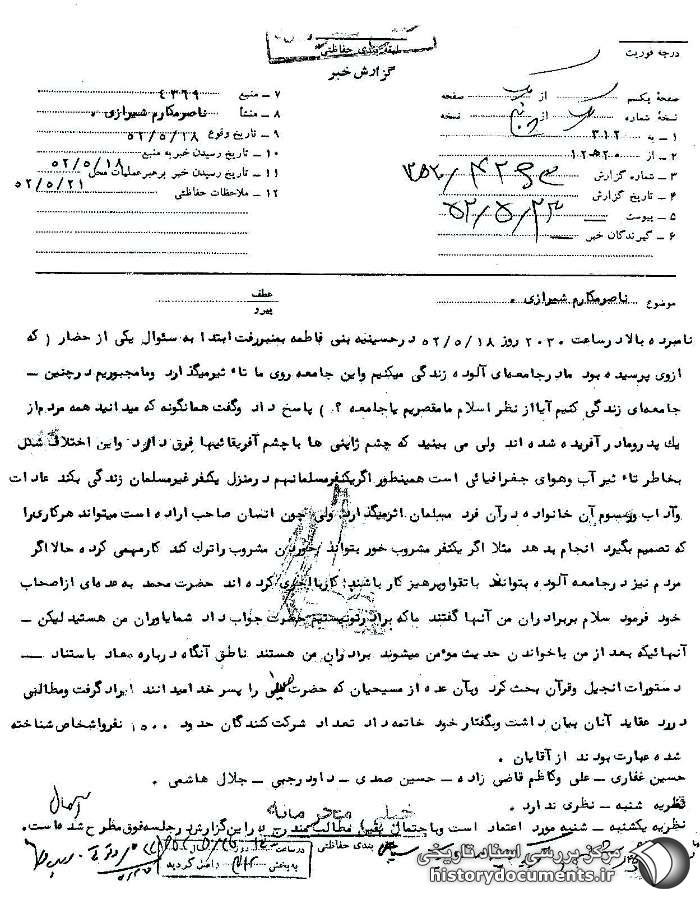 طبقه بندی حفاظتی
گزارش خبر
درجه فوریت
صفحه یکم از یک صفحه
نسخه شماره یک از نسخه
۱ ـ به ۳۱۲
۲ ـ از ۲۰ ه‍ ۱۲
۳ ـ شماره گزارش
۴ ـ تاریخ گزارش ۵۲/۵/۲۳
۵ ـ پیوست
۶ ـ گیرندگان خبر
۷ ـ منبع ۴۳۶۹
۸ ـ منشأ ناصرمکارم شیرازی .
۹ ـ تاریخ وقوع ۵۲/۵/۱۸
۱۰ ـ تاریخ رسیدن خبر به منبع
۱۱ ـ تاریخ رسیدن خبر برهبرعملیات محل ۵۲/۵/۱۸
۱۲ ـ ملاحظات حفاظتی ۵۲/۵/۲۱
موضوع ناصرمکارم شیرازی .
عطف
پیرو
نامبرده بالا درساعت ۲۰۳۰ روز ۵۲/۵/۱۸ درحسینیه بنی فاطمه بمنبررفت ابتدا به سئوال یکی از حضار ( که
ازوی پرسیده بود مادرجامعه‌ای آلوده زندگی میکنیم واین جامعه روی ما تاءثیرمیگذارد ومامجبوریم درچنین ـ
جامعه‌ای زندگی کنیم آیااز نظر اسلام مامقصریم یاجامعه ؟. ) پاسخ داد وگفت همانگونه که میدانید همه مردم‌از
یك پدرومادر آفریده شده اند ولی می بینید که چشم ژاپنی ها باچشم آفریقائیها فرق دارد واین اختلاف شکل
بخاطر تاءثیر آب وهوای جغرافیائی است همینطور اگریکنفرمسلمانهم درمنزل یکنفر غیرمسلمان زندگی بکند عادات
وآداب ورسوم آن خانواده درآن فرد مسلمان اثرمیگذارد ولی چون انسان صاحب اراده است میتواند هرکاری‌را
که تصمیم بگیرد انجام بدهد مثلا اگر یکنفر مشروب خور بتواند خوردن مشروب راترك کند کارمهمی کرده حالااگر
مردم نیز درجامعه آلوده بتوانند با تقواوپرهیز کار باشند کار کرده اند حضرت محمد به عده‌ای ازاصحاب
خود فرمود سلام بربرادران من آنها گفتند ماکه برادرتو حضرت جواب داد شمایاوران من هستید لیکن ـ
آنهائیکه بعد از من باخواندن حدیث موءمن میشوند برادران من هستند ناطق آنگاه درباره معاد باستناد ـــ
دستورات انجیل وقرآن بحث کرد وبآن عده از مسیحیان که حضرت را پسر خدامیدانند ایراد گرفت ومطالبی
دررد عقاید آنان بیان داشت وبگفتار خود خاتمه داد تعداد شرکت کنندگان حدود ۱۵۰۰ نفرواشخاص شناخته
شده عبارت بودند از آقایان .
حسین غفاری ـ علی وکاظم قاضی زاده ـ حسین صمدی ـ داود رجبی ـ جلال هاشمی .
نظریه شنبه ـ نظری ندارد .
خیلی محرمانه
نظریه یکشنبه ـ شنبه مورد اعتماد است وباحتمال مطالب مندرجه دراین گزارش درجلسه فوق مطرح شده‌است .
طبقه بندی حفاظتی
درساعت روز
به بخش واصل گردید
مرکز بررسی اسناد تاریخی
historydocuments.ir